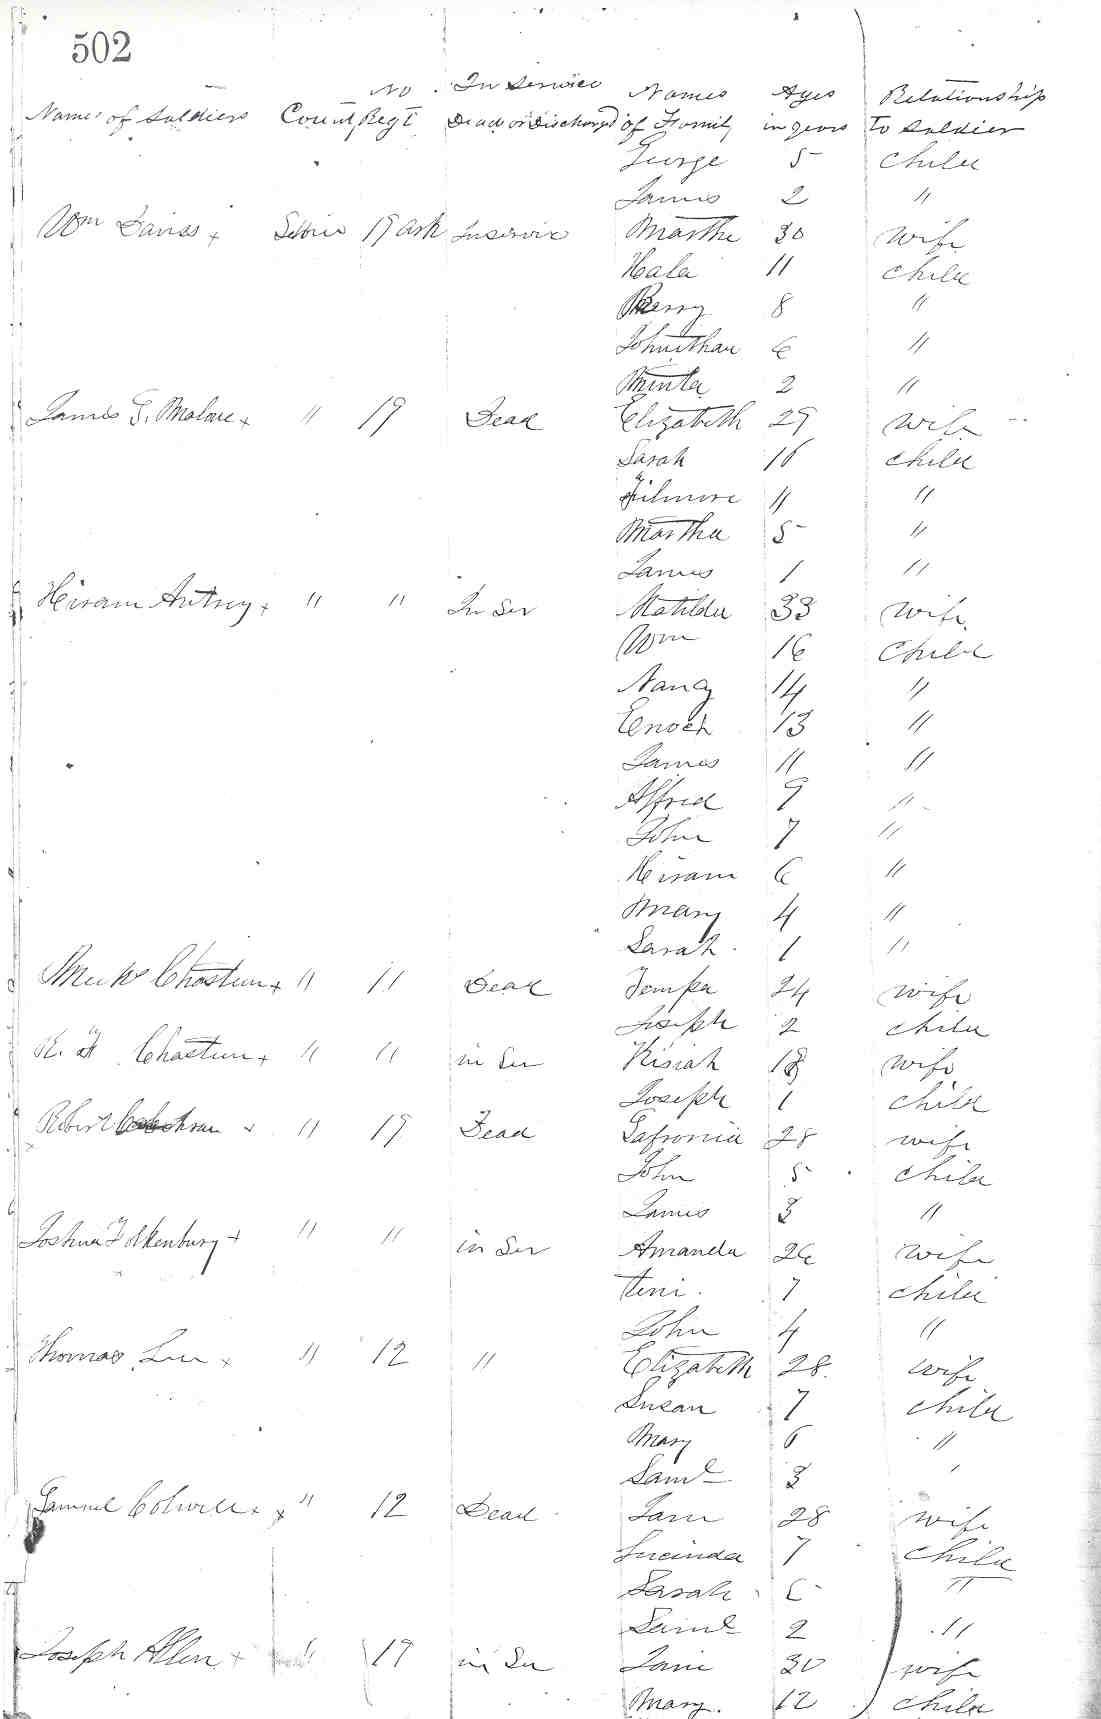 502
No In Service Names Ages Relationship
Names of Soldiers Count Regt Dead or Discharged of Family in years to Soldier
George 5 child
James 2 "
Wm 19 Ark In service Martha 30 wife
Hala 11 child
Berry 8 "
Johnathan 6 "
Minta 2 "
James G. Malone x " 19 Dead Elizabeth 29 wife
Sarah 16 child
Filmore 11 "
Martha 5 "
James 1 "
Hiram Autrey x " " In Ser Matilda 33 wife
Wm 16 Child
Nancy 14 "
Enoch 13 "
James 11 "
Alfred 9 "
John 7 "
Hiram 6 "
Mary 4 "
Sarah 1 "
Chasteen x " " Dead Tempa 24 wife
Joseph 2 child
R. H Chasteen x " " in Ser Kisiah 18 wife
Joseph 1 child
Robert x " 19 Dead Safronia 28 wife
John 5 child
James 3 "
Joshua Folkenbury x " " in Ser Amanda 26 wife
Teni 7 child
John 4 "
Thomas Lee x " 12 " Elizabeth 28 wife
Susan 7 child
Mary 6 "
Saml 3 "
Samuel Colwell x x " 12 Dead Jane 28 wife
Lucinda 7 child
Sarah 5 "
Saml 2 "
Joseph Allen x " 19 in Ser Jane 30 wife
Mary 12 child